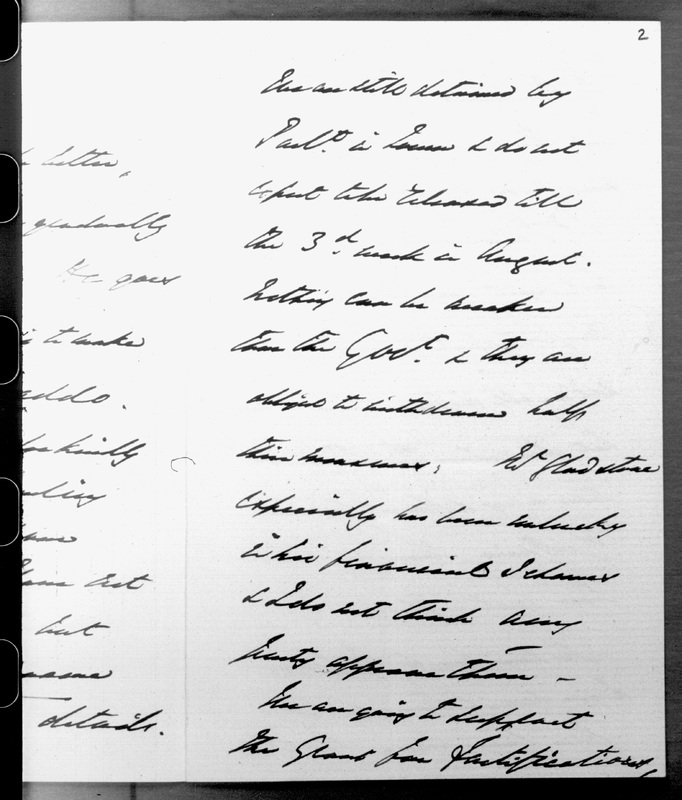 2
letter,
gradually
He goes
to make
addo.
kindly
not
but
details.
We are still detained by
Parlt. in Town & do not
expect to be released till
the 3d. week in August.
Nothing can be weaker
than the Govt. & they are
obliged to withdraw half
their measures; Mr. Gladstone
especially has been unlucky
in his financial Schemes
& I do not think any
party approve them –
We are going to support
the Grant for Fortifications,